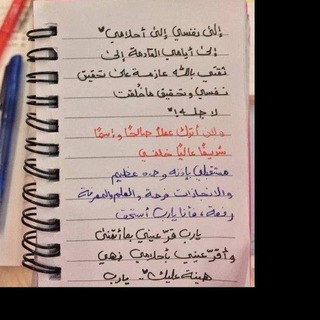 إلى نفسي إلى أحلامي
إلى أيامي القادمة إلى
ثقتي بالله عازمة على تحقيق
نفسي وتحقيق ما خُلقت
لأجله!"
ولأن أترك عملاً صالحًا وإسمًا
شريفًا عاليًا خلفي
مستقبلي بإذنه وحده عظيم
والانجازات فرحة والعلم والمعرفة
رفعة، فأنا يارب أستحق
يارب قرّ عيني بما أتمنى
وأقرّ عيني بأحلامي فهي
هينة عليك". يارب